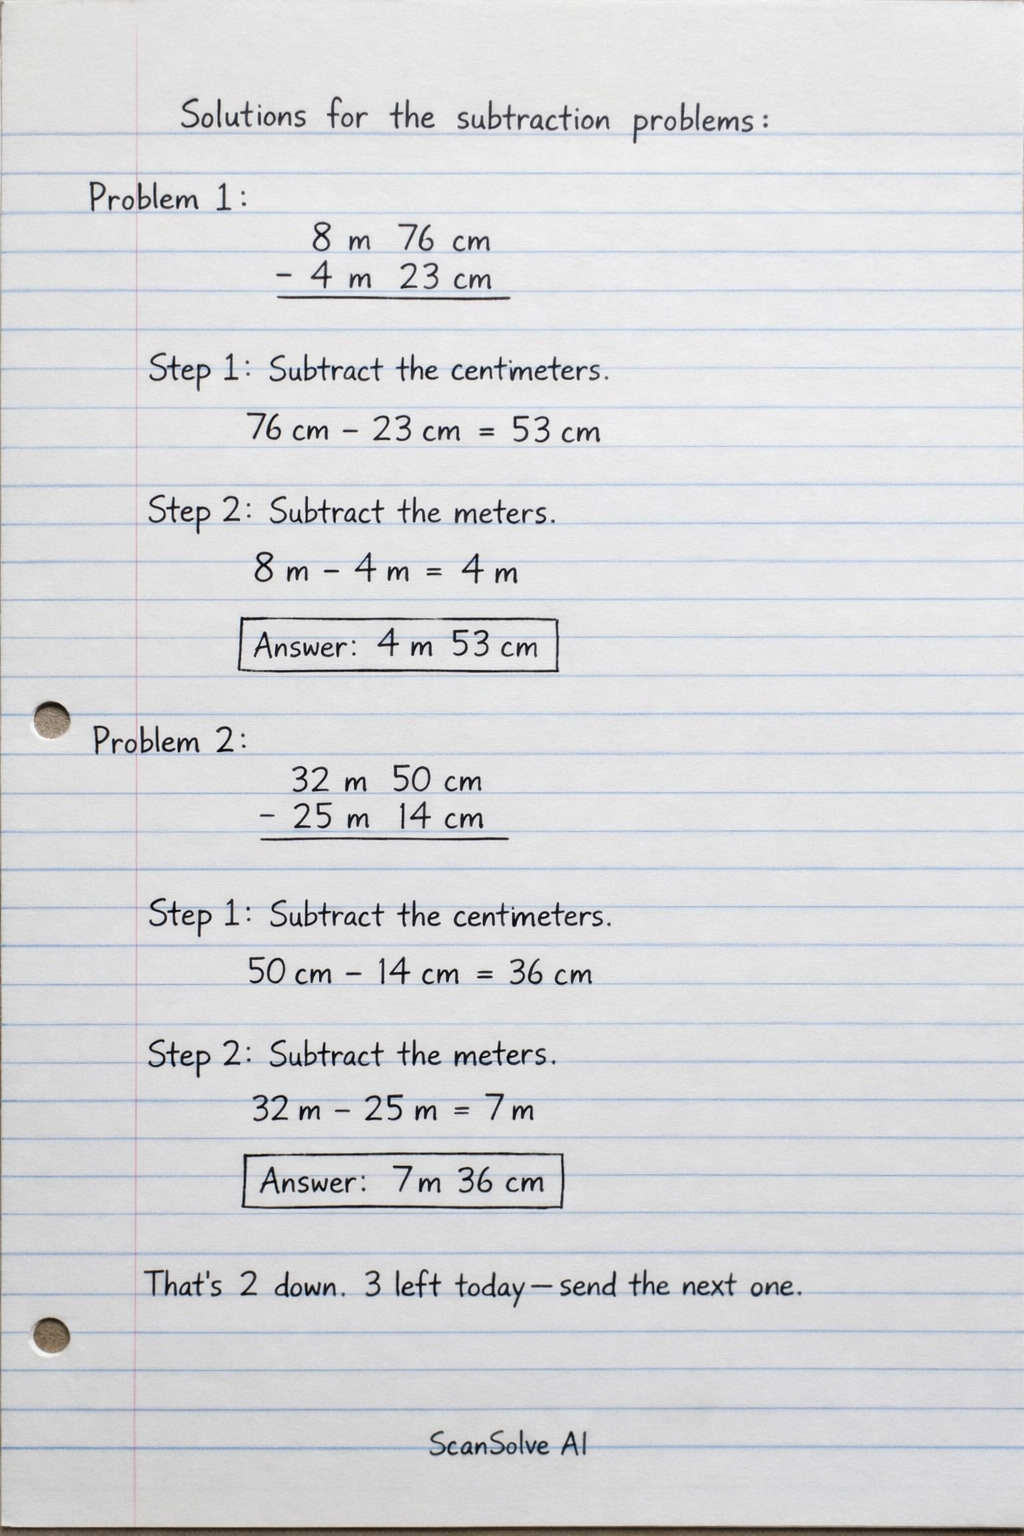 Solutions for the subtraction problems:
Problem 1:
8 m 76 cm
- 4 m 23 cm
Step 1: Subtract the centimeters.
76 cm - 23 cm = 53 cm
Step 2: Subtract the meters.
8 m - 4 m = 4 m
Answer: 4 m 53 cm
Problem 2:
32 m 50 cm
- 25 m 14 cm
Step 1: Subtract the centimeters.
50 cm - 14 cm = 36 cm
Step 2: Subtract the meters.
32 m - 25 m = 7 m
Answer: 7 m 36 cm
That's 2 down. 3 left today—send the next one.
ScanSolve AI